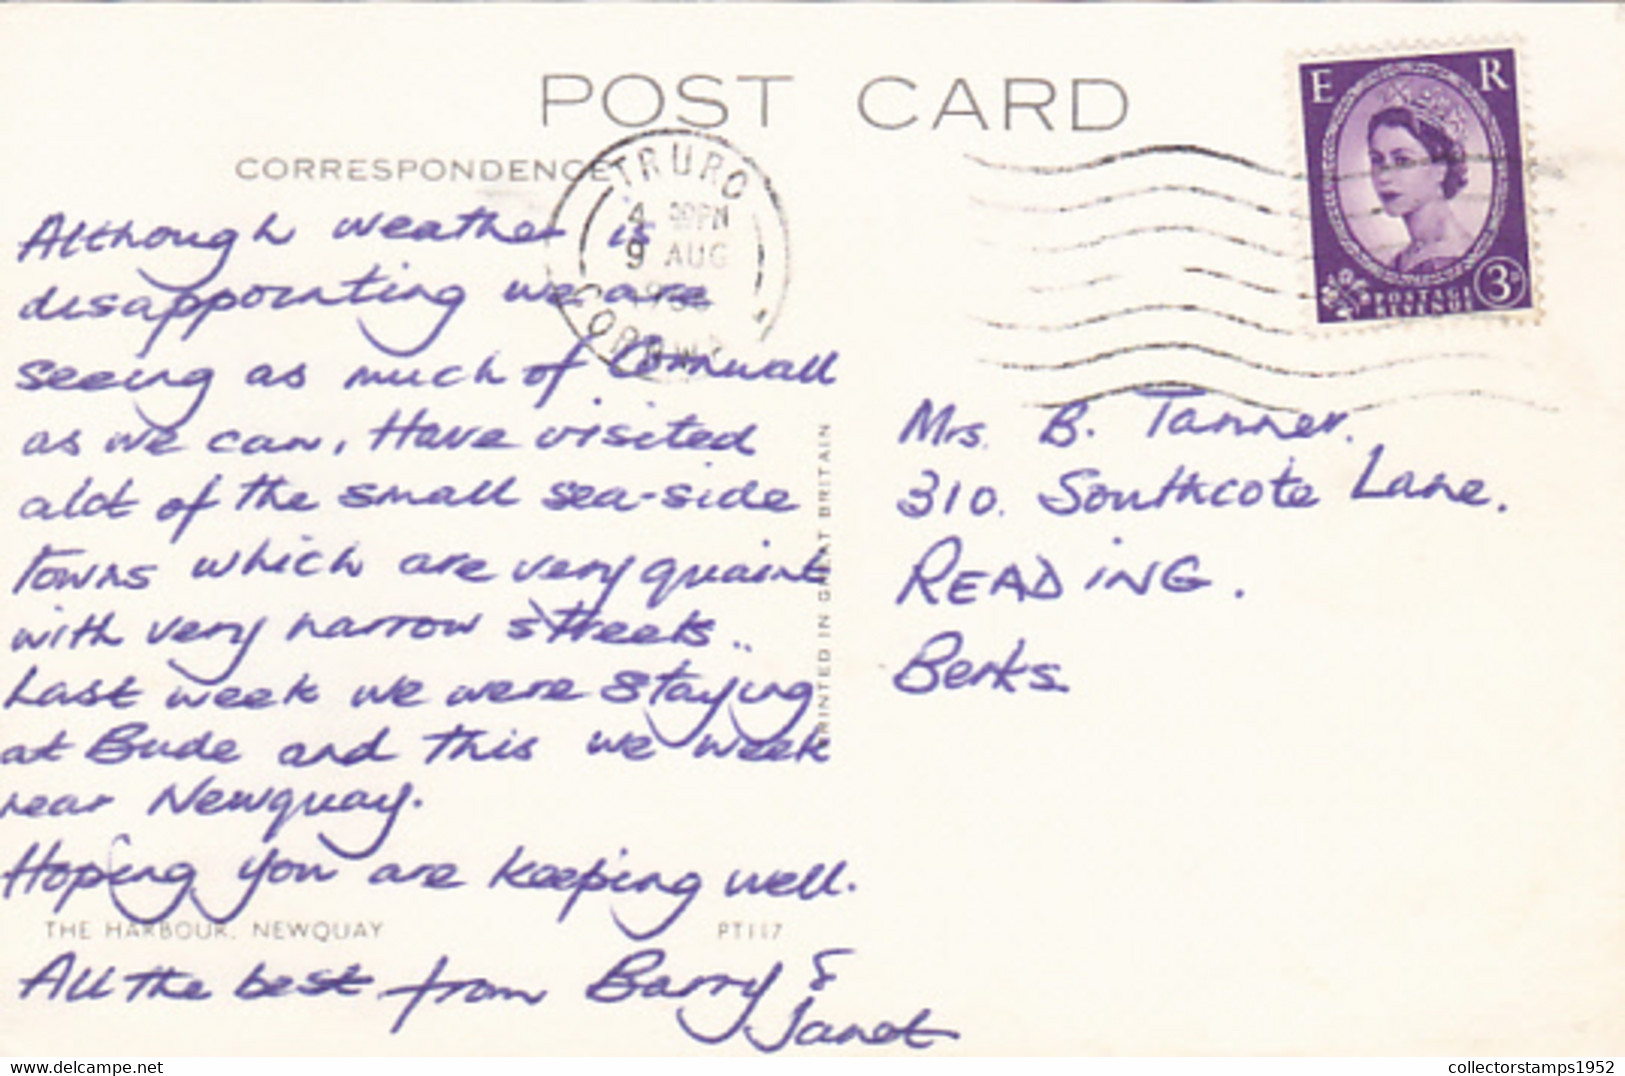 POST CARD
CORRESPONDENCE
TRURO
4 PM
9 AUG
CORNWALL
E R
POSTAGE
REVENUE
3D
Although weather is
disappointing we are
seeing as much of Cornwall
as we can, Have visited
alot of the small sea-side
towns which are very quaint
with very narrow streets..
Last week we were staying
at Bude and this we week
near Newquay.
Hoping you are keeping well.
THE HARBOUR, NEWQUAY
PT117
All the best from Barry &
Janet
PRINTED IN GREAT BRITAIN
Mrs. B. Tanner.
310. Southcote Lane.
READING.
Berks.
delcampe.net
collectorstamps1952